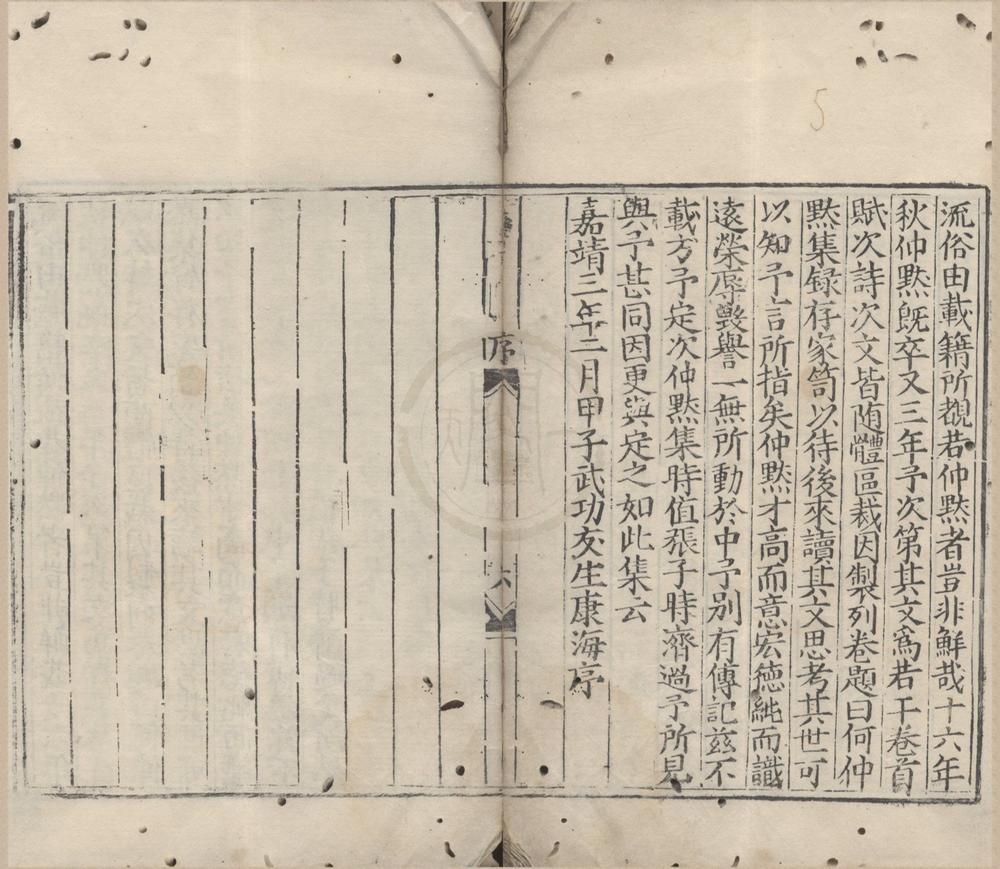 流俗由載籍所覩若仲黙者豈非鮮哉十六年
秋仲黙旣卒又三年予次第其文爲若干卷首
賦次詩次文皆随體區裁因製列卷題曰何仲
黙集録存家笥以待後來讀其文思考其世可
以知予言所指矣仲黙才高而意宏德純而識
遠榮辱毁譽一無所動於中予別有傳記兹不
載方予定次仲黙集時值張子時濟過予所見
與予甚同因更與定之如此集云
嘉靖三年二月甲子武功友生康海序
序
六
5